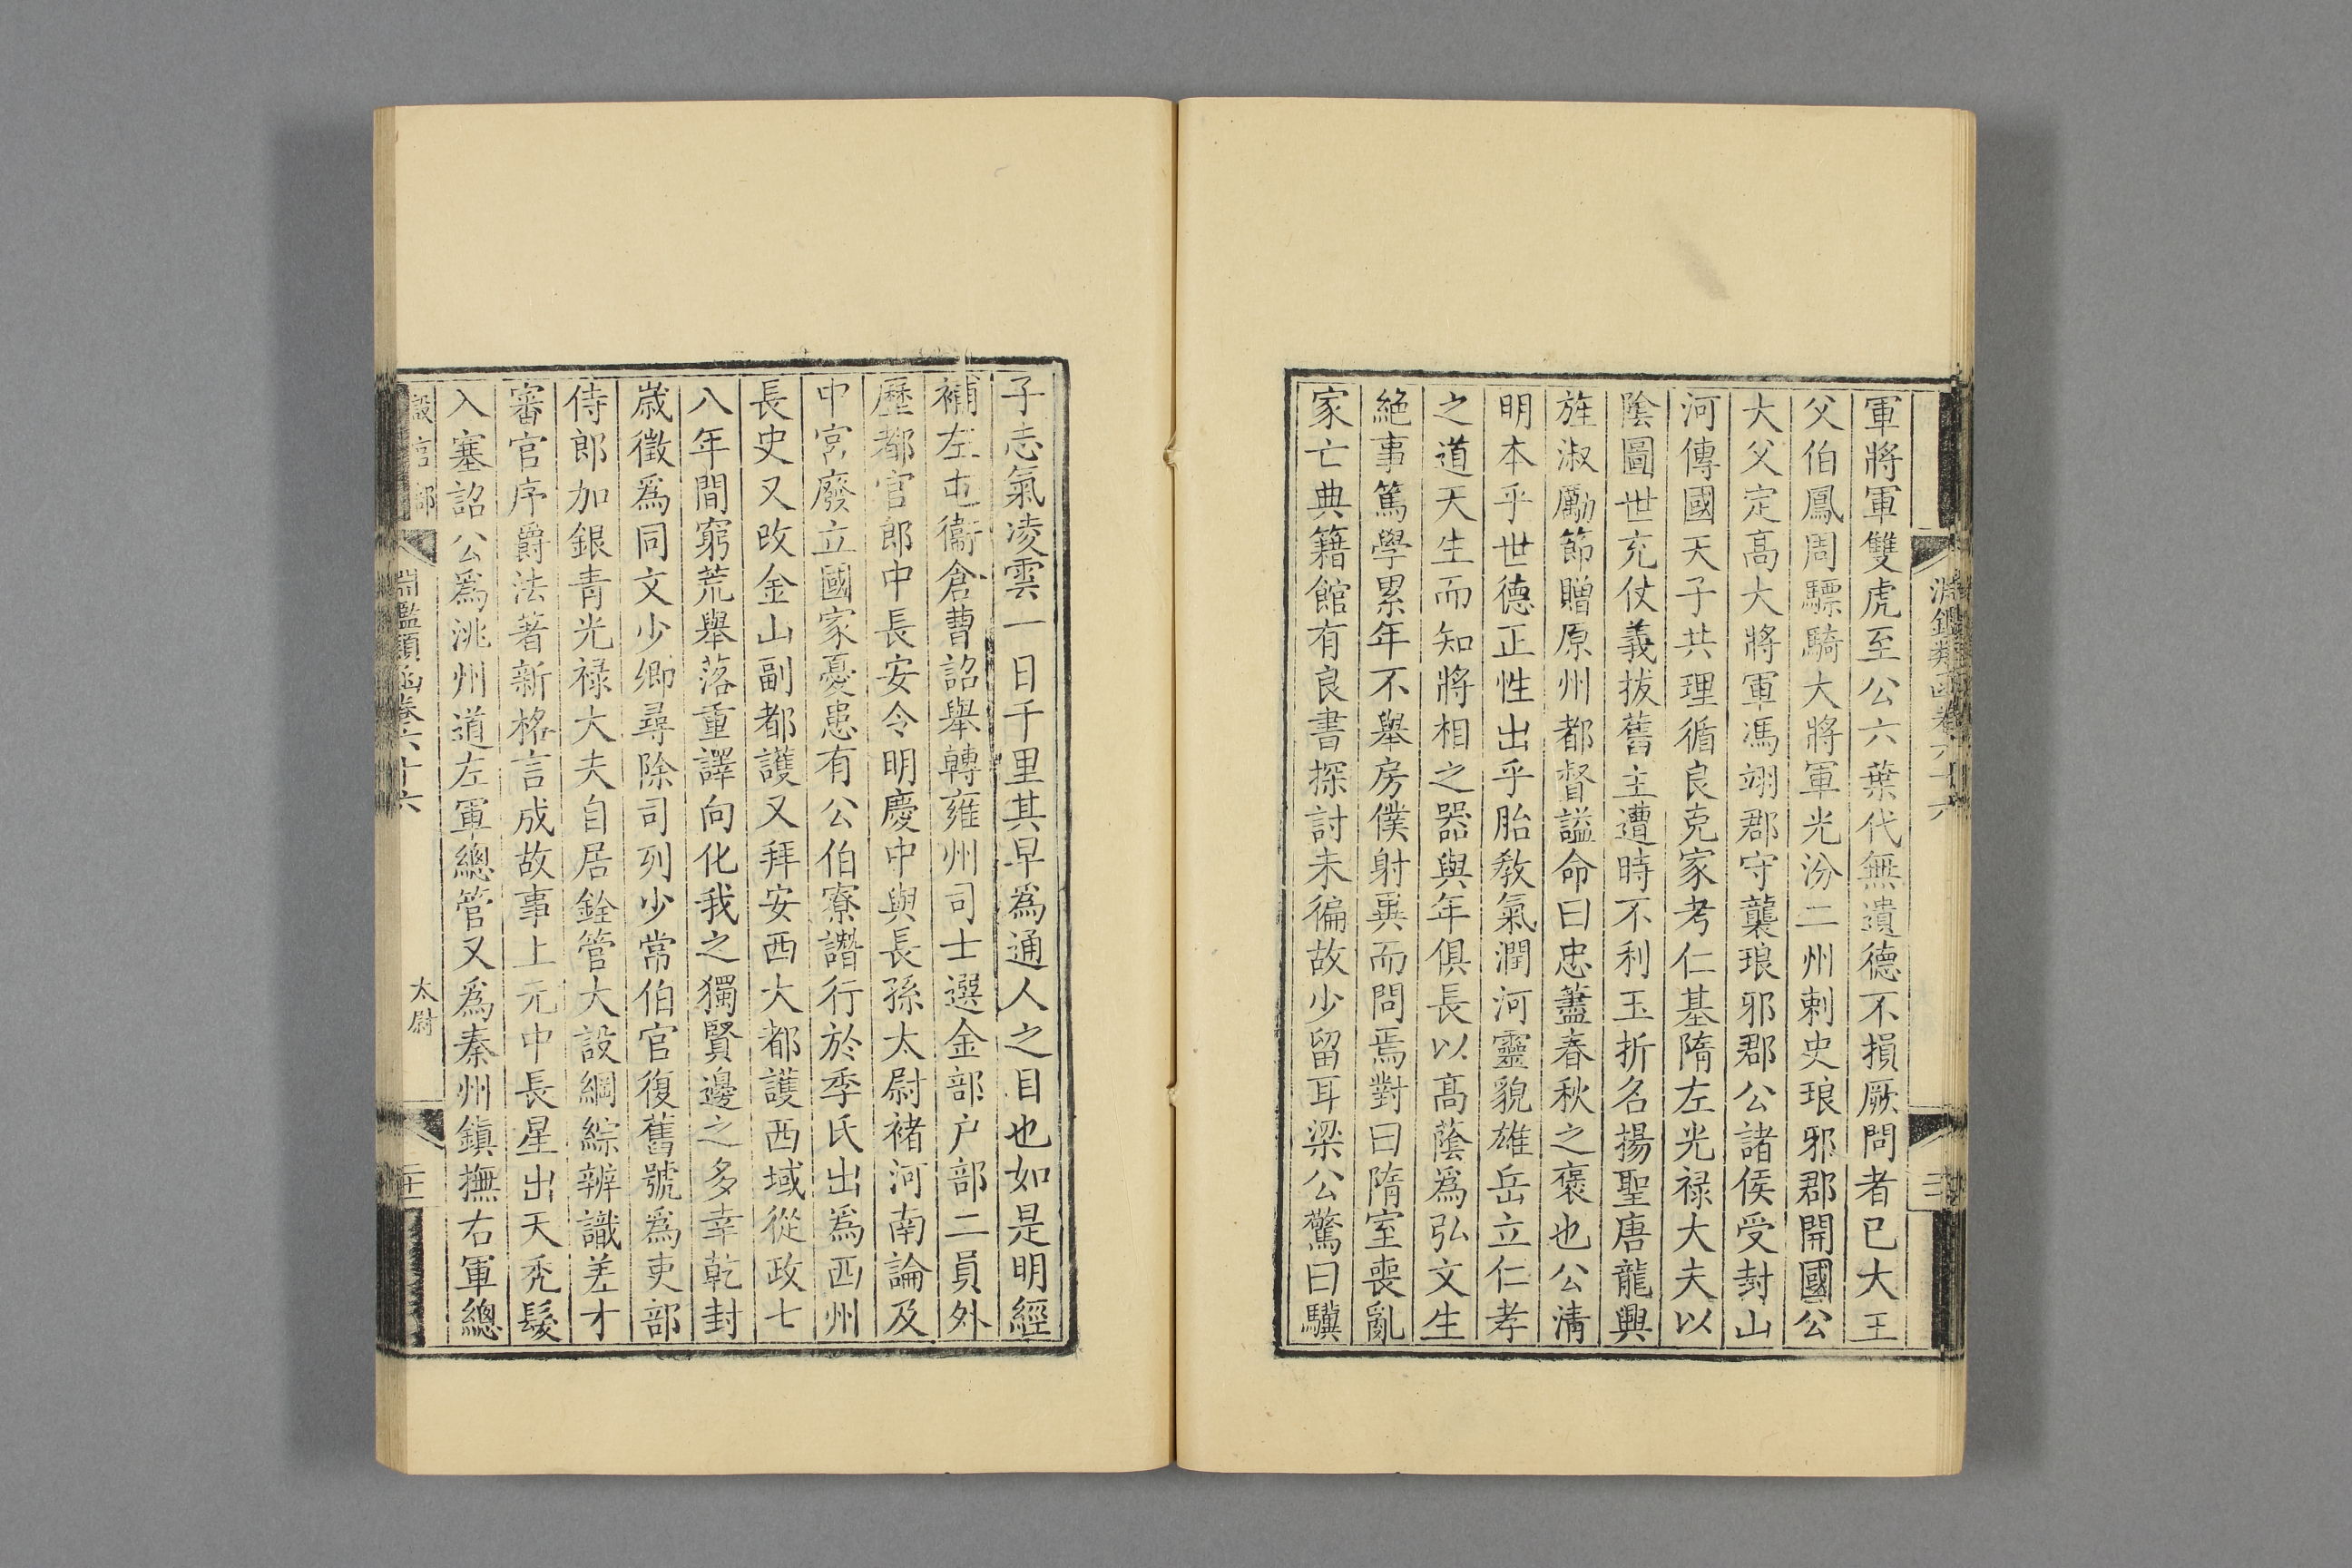 軍將軍雙虎至公六葉代無遺德不損厥問者已大王
父伯鳳周驃騎大將軍光汾二州剌史琅邪郡開國公
大父定髙大將軍馮翊郡守襲琅邪郡公諸侯受封山
河傳國天子共理循良克家考仁基隋左光禄大夫以
陰圖世充仗義拔舊主遭時不利玉折名揚聖唐龍興
旌淑勵節贈原州都督謚命曰忠藎春秋之褒也公淸
明本乎世德正性出乎胎教氣潤河靈貌雄岳立仁孝
之道天生而知將相之器與年俱長以髙蔭爲弘文生
絶事篤學累年不舉房僕射異而問焉對曰隋室喪亂
家亡典籍館有良書探討未徧故少留耳梁公驚曰驥
子志氣凌雲一日千里其早爲通人之目也如是明經
補左屯衞倉曹詔舉轉雍州司士選金部户部二員外
歷都官郎中長安令明慶中與長孫太尉褚河南論及
中宮廢立國家憂患有公伯寮譖行於季氏出爲西州
長史又改金山副都護又拜安西大都護西域從政七
八年間窮荒舉落重譯向化我之獨賢邊之多幸乾封
歲徵爲同文少卿尋除司列少常伯官復舊號爲吏部
侍郎加銀青光禄大夫自居銓管大設綱綜辨識差才
審官序爵法著新格言成故事上元中長星出天禿髮
入塞詔公爲洮州道左軍總管又爲秦州鎭撫右軍總
設官部 淵鑑類函卷六十六 太尉